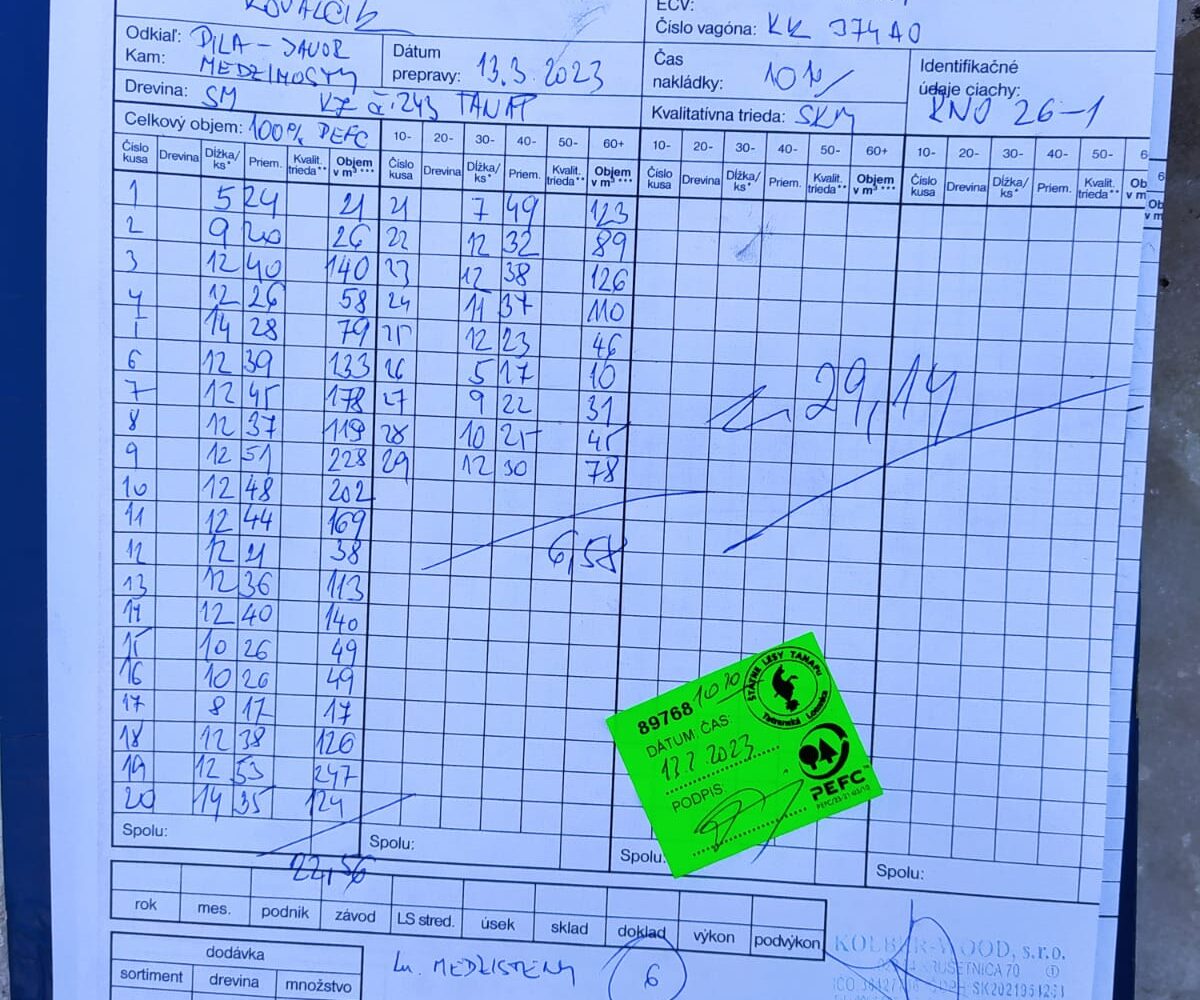 KOVALČIK
EČV:
Číslo vagóna: KK 374AO
Odkiaľ: PILA - JAVOR
Kam: MEDZIMOSTY
Dátum prepravy: 13.3.2023
Čas nakládky: 10
Identifikačné údaje ciachy: KNO 26-1
Drevina: SM VZ č. 243 TANAP
Kvalitatívna trieda: SKM
Celkový objem: 100% PEFC
10- 20- 30- 40- 50- 60+ 10- 20- 30- 40- 50- 60+ 10- 20- 30- 40- 50- 6
Číslo kusa Drevina Dĺžka/ks* Priem. Kvalit. trieda** Objem v m³ *** Číslo kusa Drevina Dĺžka/ks* Priem. Kvalit. trieda** Objem v m³ *** Číslo kusa Drevina Dĺžka/ks* Priem. Kvalit. trieda** Objem v m³ *** Číslo kusa Drevina Dĺžka/ks* Priem. Kvalit. trieda** Ob v m
1 5 24 21 21 7 49 123
2 9 20 26 22 12 32 89
3 12 40 140 23 12 38 126
4 12 26 58 24 11 37 110
5 14 28 79 25 12 23 46
6 12 39 133 26 5 17 10
7 12 45 178 27 9 22 31
8 12 37 119 28 10 25 45
9 12 51 228 29 12 30 78
10 12 48 202
11 12 44 169
12 12 21 38
13 12 36 113
14 12 40 140
15 10 26 49
16 10 26 49
17 8 17 17
18 12 38 126
19 12 53 247
20 14 35 124
6,58
29,14
Spolu: Spolu: Spolu: Spolu:
22,56
89768 10 20
DÁTUM, ČAS:
13.3.2023
PODPIS
ŠTÁTNE LESY TANAPU
Tatranská Lomnica
PEFC™
rok mes. podnik závod LS stred. úsek sklad doklad výkon podvýkon
dodávka
sortiment drevina množstvo
Lu. MEDZISTENY
6
KOLBER-WOOD, s.r.o.
KRUŠETNICA 70